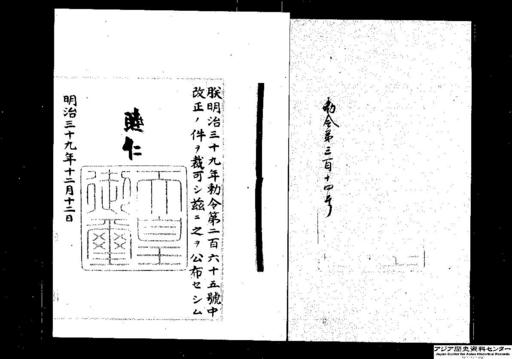 勅令第三百十四号
朕明治三十九年勅令第二百六十五號中
改正ノ件ヲ裁可シ茲ニ之ヲ公布セシム
睦仁
天皇御璽
明治三十九年十二月十二日
アジア歴史資料センター
Japan Center for Asian Historical Records